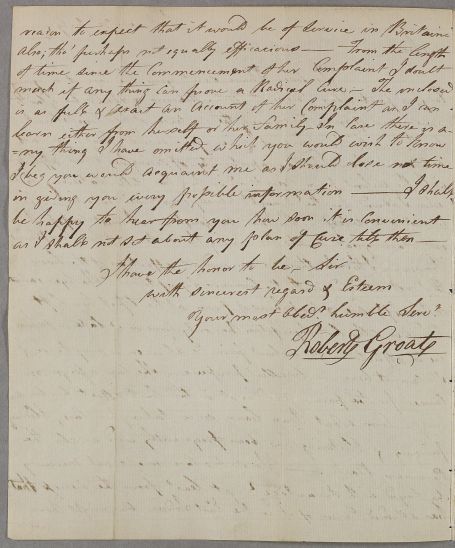 reason to expect that it would be of Service in Britain
also, tho' perhaps not equally efficacious — From the length
of time since the Commencement of her Complaint I doubt
much if any thing can prove a Radical Cure — The inclosed
is as full & exact an account of her Complaint as I can
learn either from herself or her Family In Case there is a=
=ny thing I have omitted which you would wish to know
I beg you would acquaint me as I should lose no time
in giving you every possible information — I shall
be happy to hear from you how soon it is Convenient
as I shall not set about any plan of Cure till then —
I have the honor to be, Sir
with sincerest regard & Esteem
Your most obed.t humble Serv.t
Robert Groat
that